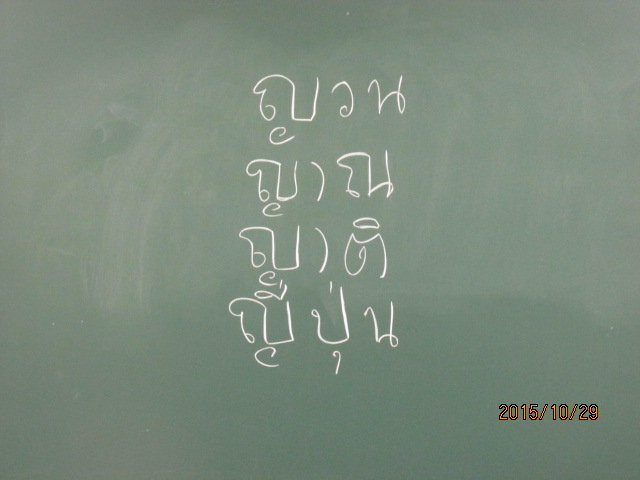 ญวน
ญาณ
ญาติ
ญี่ปุ่น
2015/10/29